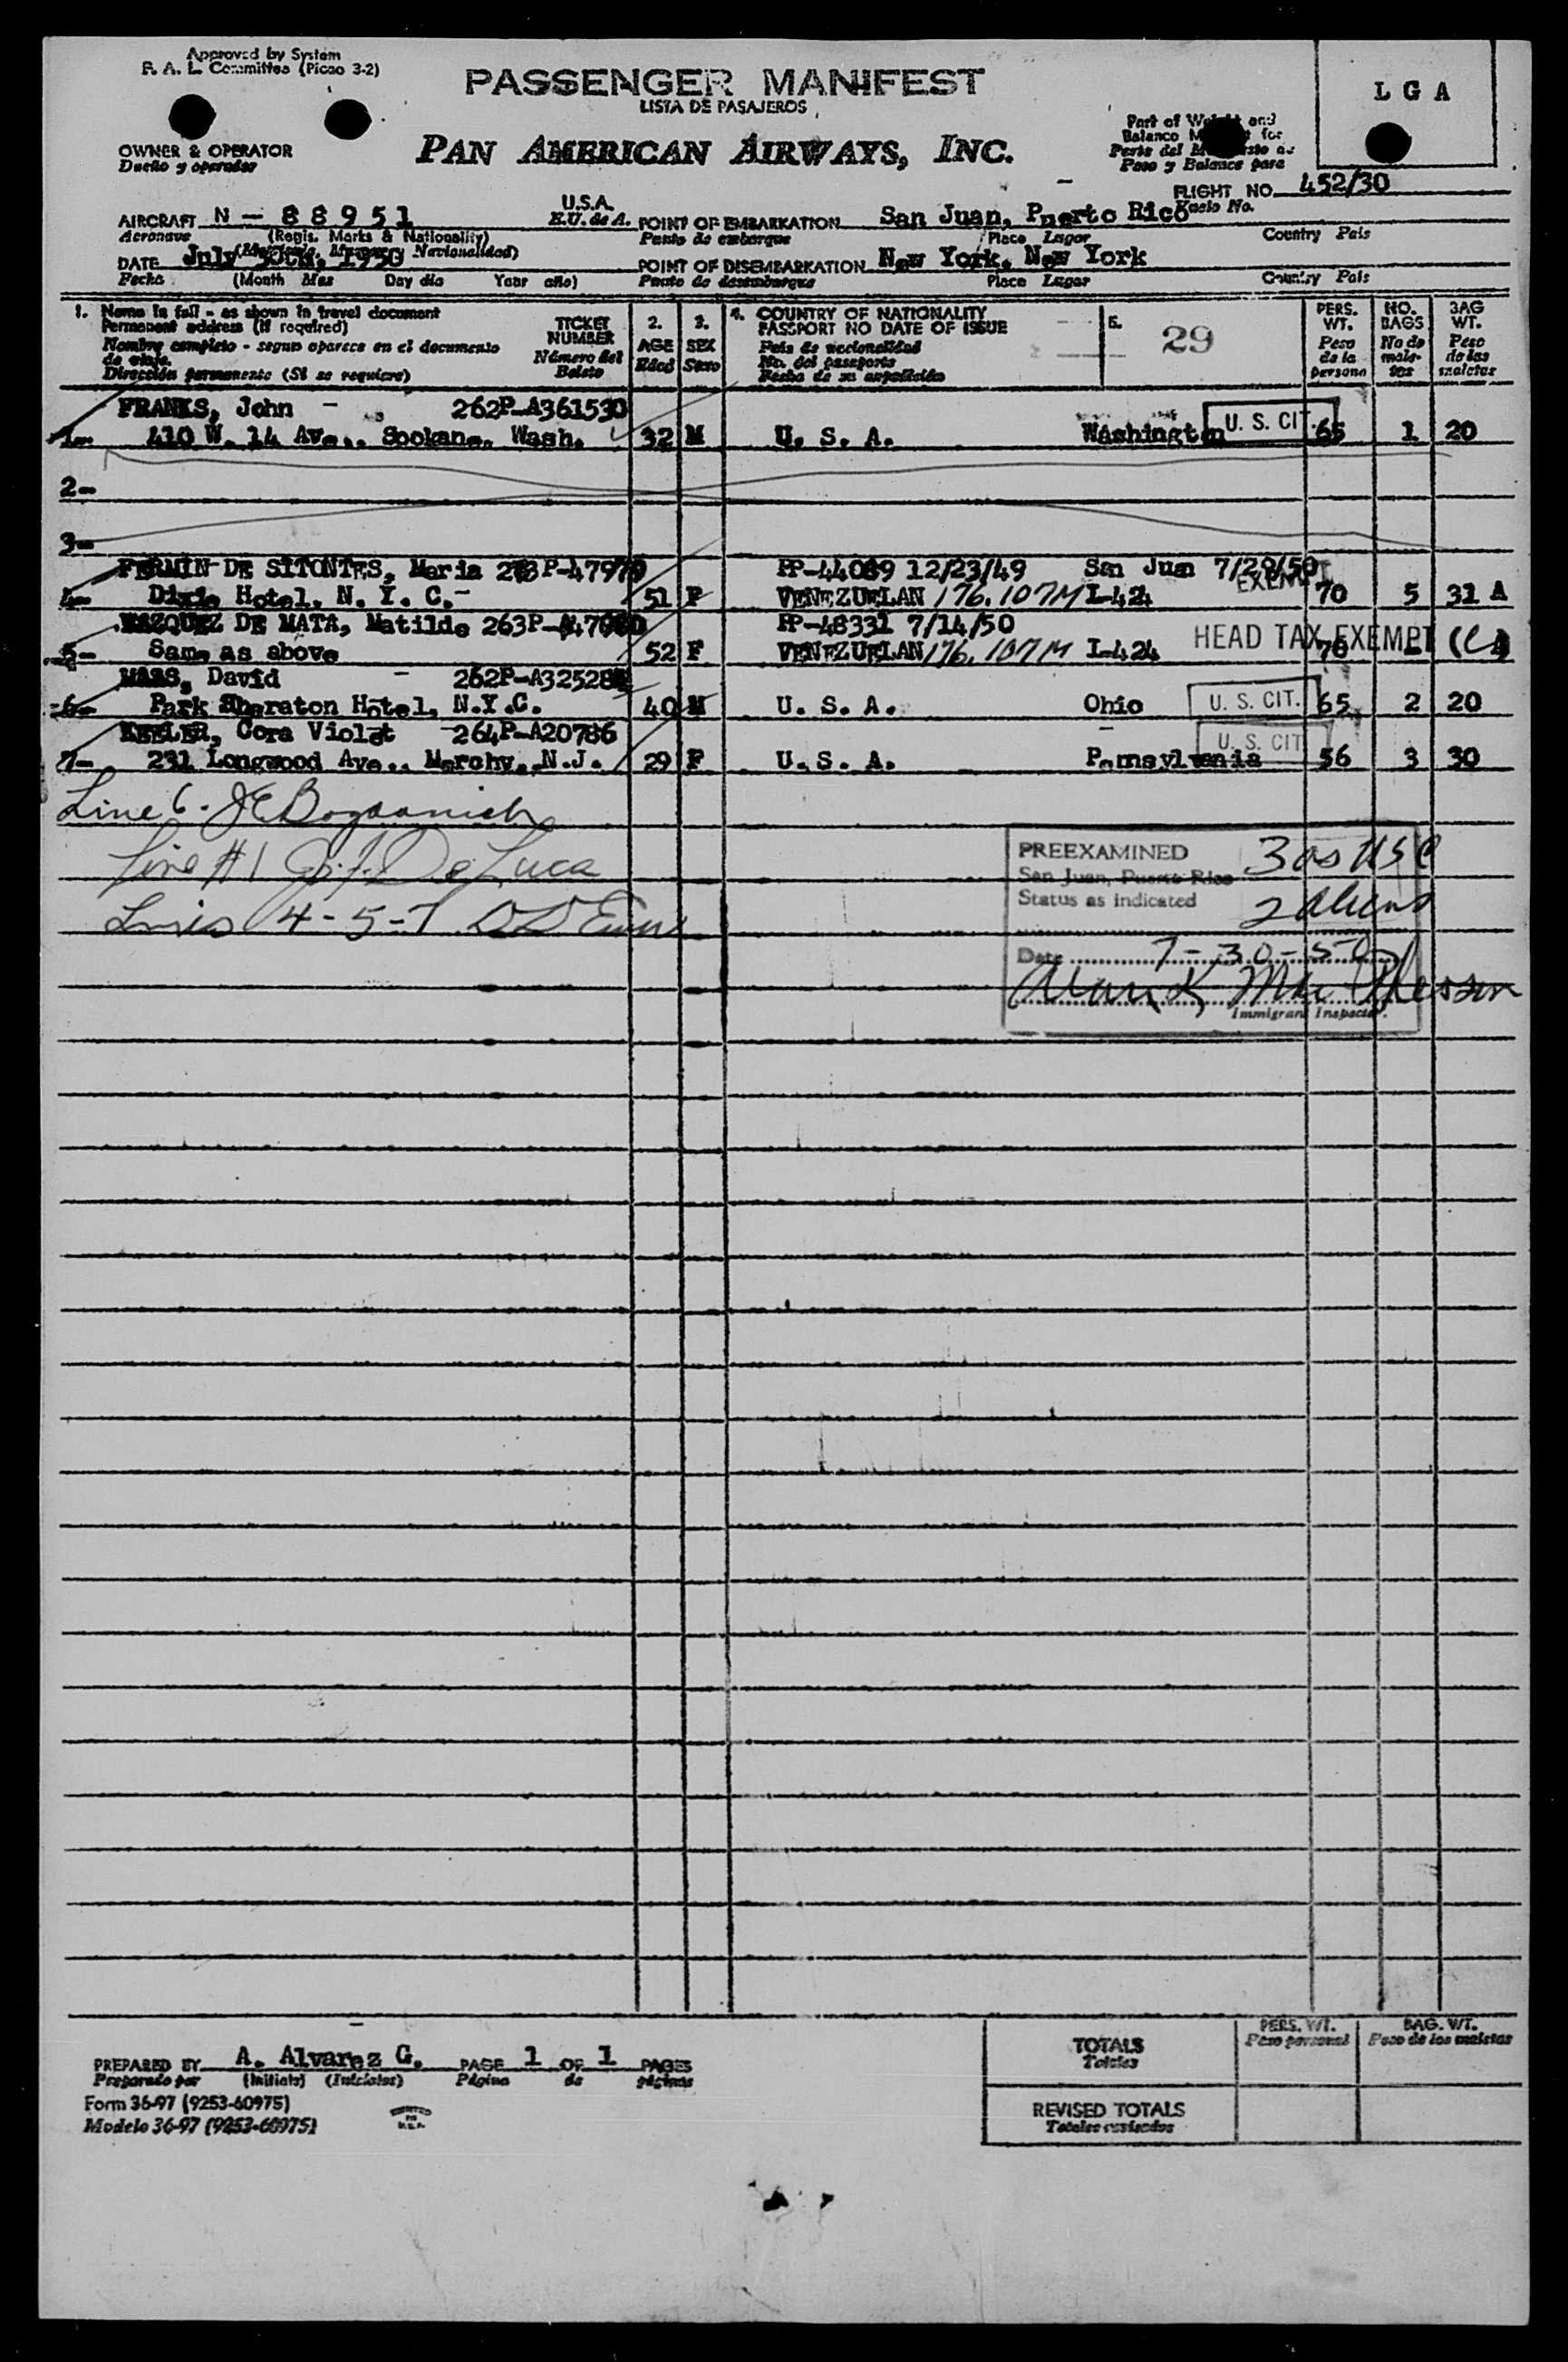 Approved by System
F. A. L. Committee (Picao 3-2)
PASSENGER MANIFEST
LISTA DE PASAJEROS
L G A
OWNER & OPERATOR
Dueño y operador
PAN AMERICAN AIRWAYS, INC.
Part of Weight and
Balance M for
Parte del M
Peso y Balance para
FLIGHT NO. 452/30
Vuelo No.
AIRCRAFT N - 88951
U.S.A.
E.U. de A.
Aeronave (Regis. Marks & Nationality)
POINT OF EMBARKATION San Juan, Puerto Rico
Punto de embarque Place Lugar Country País
DATE July 30th, 1950
Fecha (Month Mes Day día Year año)
POINT OF DISEMBARKATION New York, New York
Punto de desembarque Place Lugar Country País
1. Name in full - as shown in travel document
Permanent address (if required)
Nombre completo - segun aparece en el documento
de viaje.
Dirección permanente (Si se requiere)
TICKET
NUMBER
Número del
Boleto
2.
AGE
Edad
3.
SEX
Sexo
4. COUNTRY OF NATIONALITY
PASSPORT NO DATE OF ISSUE
País de nacionalidad
No. del pasaporte
Fecha de su expedición
5.
29
PERS.
WT.
Peso
de la
persona
NO.
BAGS
No de
male-
tas
BAG
WT.
Peso
de las
maletas
FRANKS, John - 262P-A361530
1- 410 W. 14 Ave., Spokane, Wash. 32 M U. S. A. Washington U. S. CIT. 65 1 20
2-
3-
FERMIN DE SITONTES, Maria PP-44089 12/23/49 San Juan 7/20/50
EXEMPT
4- Dixie Hotel, N. Y. C.- 51 F VENEZUELAN 176.107M I-424 70 5 31 A
VAZQUEZ DE MATA, Matilde PP-48331 7/14/50
5- Same as above 52 F VENEZUELAN 176.107M I-424 HEAD TAX EXEMPT
MAAS, David -
6- Park Sheraton Hotel, N.Y.C. 40 M U. S. A. Ohio U. S. CIT. 65 2 20
KEELER, Cora Violet 264P-A20786
7- 231 Longwood Ave., N.J. 29 F U. S. A. Pennsylvania U. S. CIT 56 3 30
Line 6.
Line #1 De Luca
Lines 4-5-7
PREEXAMINED 3 as USC
San Juan, Puerto Rico
Status as indicated 2 aliens
Date 7-30-50
Immigrant Inspector.
PREPARED BY A. Alvarez G. PAGE 1 OF 1 PAGES
Preparado por (Initials) (Iniciales) Página de páginas
Form 36-97 (9253-60975)
Modelo 36-97 (9253-60975)
PERS. WT.
Peso personal
BAG. WT.
Peso de las maletas
TOTALS
Totales
REVISED TOTALS
Totales revisados